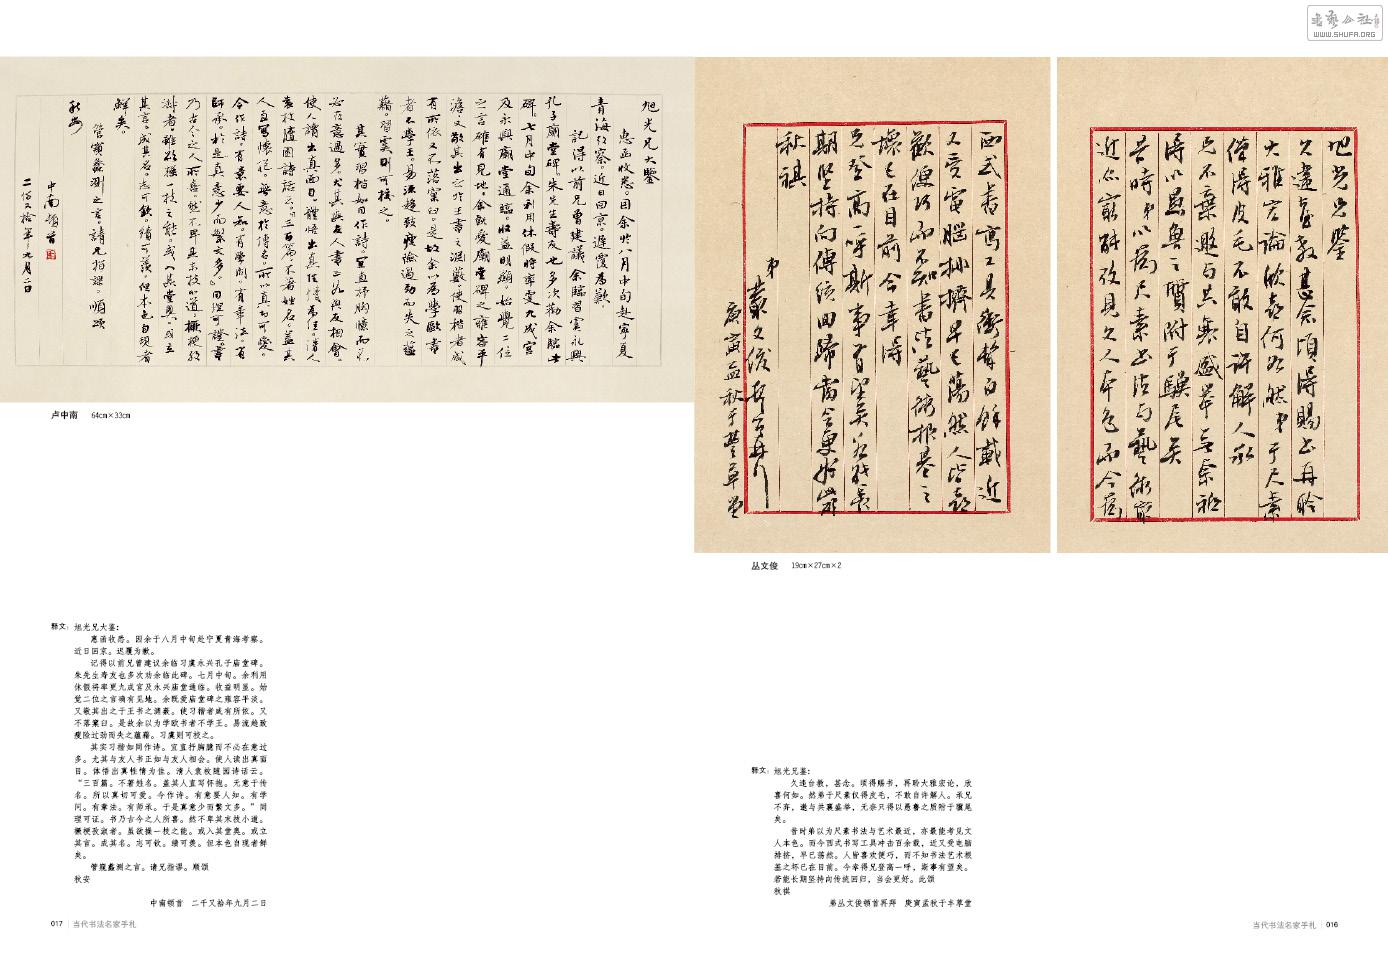 書藝公社
WWW.SHUFA.ORG
旭光兄大鑒
惠函收悉。因余於八月中旬赴寧夏
青海考察。近日回京。遲覆為歉。
記得以前兄曾建議余臨習虞永興
孔子廟堂碑。朱先生壽友也多次勸余臨此
碑。七月中旬余利用休假時率更九成宮
及永興廟堂通臨。收益明顯。始覺二位
之言確有見地。余既愛廟堂碑之雍容平
淡。又敬其出之於王書之淵藪。使習楷者咸
有所依。又不落窠臼。是故余以為學歐書
者不學王。易流趨致瘦險過勁而失之蘊
藉。習虞則可校之。
其實習楷如同作詩。宜直抒胸臆而不
必在意過多。尤其與友人書正如與友相會。
使人讀出真面目。體悟出真性情為佳。清人
袁枚隨園詩話云。三百篇。不著姓名。蓋其
人直寫懷抱。無意於傳名。所以真切可愛。
今作詩。有意要人知。有學問。有章法。有
師承。於是真意少而繁文多。同理可證。書
乃古今之人所喜。然不卑其末技小道。橛梗孜
孜者。雖欲操一枝之能。或入其堂奧。或立
其言。成其名。志可欽。績可羨。但本色自現者
鮮矣。
管窺蠡測之言。請兄指謬。順頌
秋安
中南頓首
二千又拾年九月二日
卢中南 64cm×33cm
旭光兄鑒
久違台教甚念頃得賜書再聆
大雅宏論欣喜何如然弟于尺素
僅得皮毛不敢自許解人承
兄不棄邀与共襄盛举無奈祗
得以愚魯之質附于驥尾矣
昔時弟以為尺素書法与藝術最
近亦最能攷見文人本色而今為
西式書寫工具衝擊百餘載近
又受電腦排擠早已蕩然人皆喜
歡便巧而不知書法藝術根基之
壞已在目前今幸得
兄登高一呼斯事有望矣若能長
期堅持向傳統回歸當會更好耑頌
秋祺
弟叢文俊頓首再拜
庚寅孟秋于豐草堂
丛文俊 19cm×27cm×2
释文：旭光兄大鉴：
惠函收悉。因余于八月中旬赴宁夏青海考察。
近日回京。迟覆为歉。
记得以前兄曾建议余临习虞永兴孔子庙堂碑。
朱先生寿友也多次劝余临此碑。七月中旬。余利用
休假将率更九成宫及永兴庙堂通临。收益明显。始
觉二位之言确有见地。余既爱庙堂碑之雍容平淡。
又敬其出之于王书之渊薮。使习楷者咸有所依。又
不落窠臼。是故余以为学欧书者不学王。易流趋致
瘦险过劲而失之蕴藉。习虞则可校之。
其实习楷如同作诗。宜直抒胸臆而不必在意过
多。尤其与友人书正如与友人相会。使人读出真面
目。体悟出真性情为佳。清人袁枚随园诗话云。
“三百篇。不著姓名。盖其人直写怀抱。无意于传
名。所以真切可爱。今作诗。有意要人知。有学
问。有章法。有师承。于是真意少而繁文多。”同
理可证。书乃古今之人所喜。然不卑其末技小道。
橛梗孜孜者。虽欲操一枝之能。或入其堂奥。或立
其言。成其名。志可钦。绩可羡。但本色自现者鲜
矣。
管窥蠡测之言。请兄指谬。顺颂
秋安
中南顿首 二千又拾年九月二日
017 当代书法名家手札
释文：旭光兄鉴：
久违台教，甚念。顷得赐书，再聆大雅宏论，欣
喜何如。然弟于尺素仅得皮毛，不敢自许解人。承兄
不弃，邀与共襄盛举，无奈只得以愚鲁之质附于骥尾
矣。
昔时弟以为尺素书法与艺术最近，亦最能考见文
人本色。而今西式书写工具冲击百余载，近又受电脑
排挤，早已荡然。人皆喜欢便巧，而不知书法艺术根
基之坏已在目前。今幸得兄登高一呼，斯事有望矣。
若能长期坚持向传统回归，当会更好。此颂
秋祺
弟丛文俊顿首再拜 庚寅孟秋于丰草堂
当代书法名家手札 016